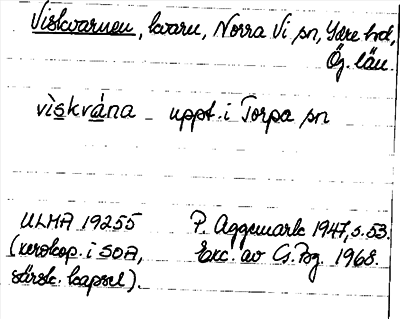 Viskvarnen, kvarn, Norra Vi sn, Ydre hd,
Ög. län.
vìskvána uppt. i Torpa sn
ULMA 19255 P. Aggemark 1947, s. 53.
(xerokop. i SOA, Exc. av G. Bg. 1968.
särsk. kapsel).